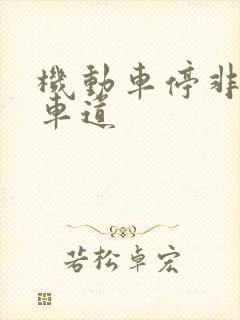 機動車停非
車道
若松卓宏